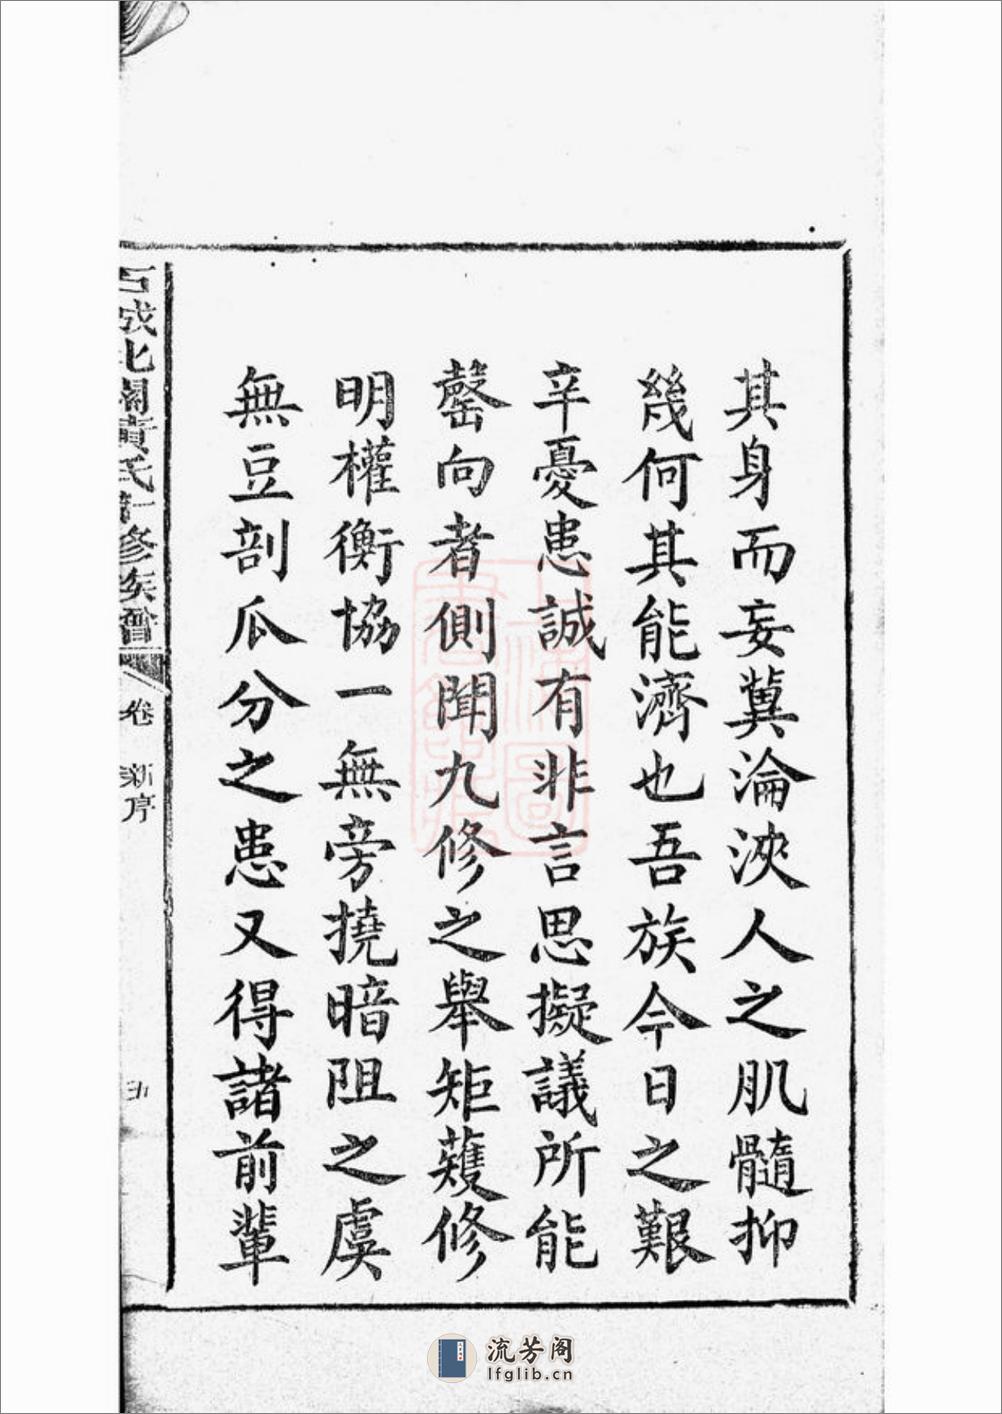 其身而妄冀淪浹人之肌髓抑
幾何其能濟也吾族今日之艱
辛憂患誠有非言思擬議所能
罄向者側聞九修之舉矩矱修
明權衡協一無旁撓暗阻之虞
無豆剖瓜分之患又得諸前輩
石城北關黃氏
修族譜
卷
新序
五
流芳阁
lfglib.cn